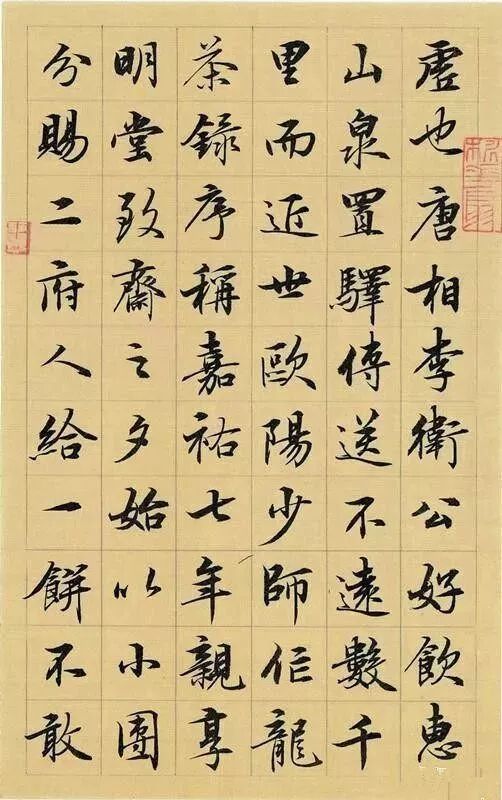 虚也唐相李衛公好飲惠
山泉置驛傳送不遠數千
里而近世歐陽少師作龍
茶錄序稱嘉祐七年親享
明堂致齋之夕始以小團
分賜二府人給一餅不敢